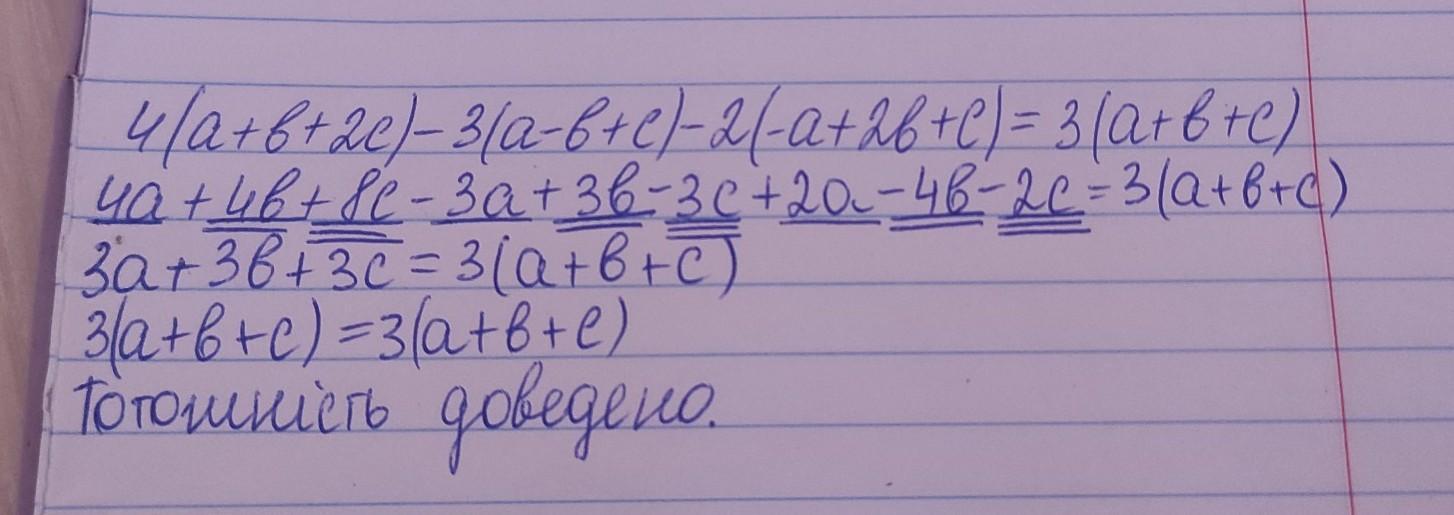 4(a+b+2c)-3(a-b+c)-2(-a+2b+c)=3(a+b+c)
4a+4b+8c-3a+3b-3c+2a-4b-2c=3(a+b+c)
3a+3b+3c=3(a+b+c)
3(a+b+c)=3(a+b+c)
Тотожність доведено.